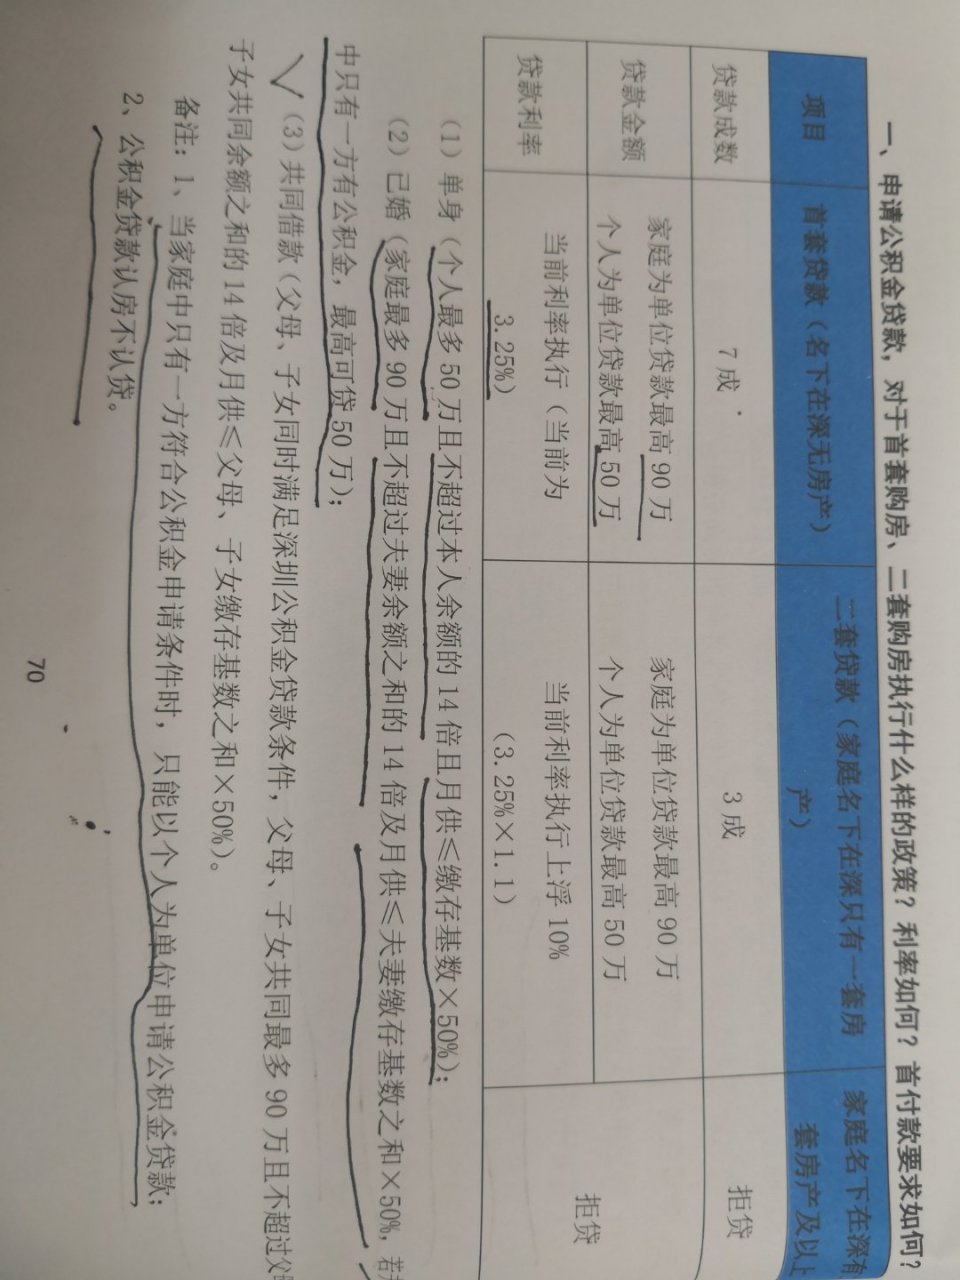 一、申请公积金贷款，对于首套购房、二套购房执行什么样的政策？利率如何？首付款要求如何？
项目
首套贷款（名下在深无房产）
二套贷款（家庭名下在深只有一套房
产）
家庭名下在深有
套房产及以上
贷款成数
7成
3成
拒贷
贷款金额
家庭为单位贷款最高 90 万
个人为单位贷款最高 50 万
家庭为单位贷款最高 90 万
个人为单位贷款最高 50 万
拒贷
贷款利率
当前利率执行（当前为
3.25%）
当前利率执行上浮 10%
（3.25%×1.1）
（1）单身（个人最多 50 万且不超过本人余额的 14 倍且月供≤缴存基数×50%）；
（2）已婚（家庭最多 90 万且不超过夫妻余额之和的 14 倍及月供≤夫妻缴存基数之和×50%，若
中只有一方有公积金，最高可贷 50 万）；
（3）共同借款（父母、子女同时满足深圳公积金贷款条件，父母、子女共同最多 90 万且不超过父
子女共同余额之和的 14 倍及月供≤父母、子女缴存基数之和×50%）。
备注：1、当家庭中只有一方符合公积金申请条件时，只能以个人为单位申请公积金贷款；
2、公积金贷款认房不认贷。
70